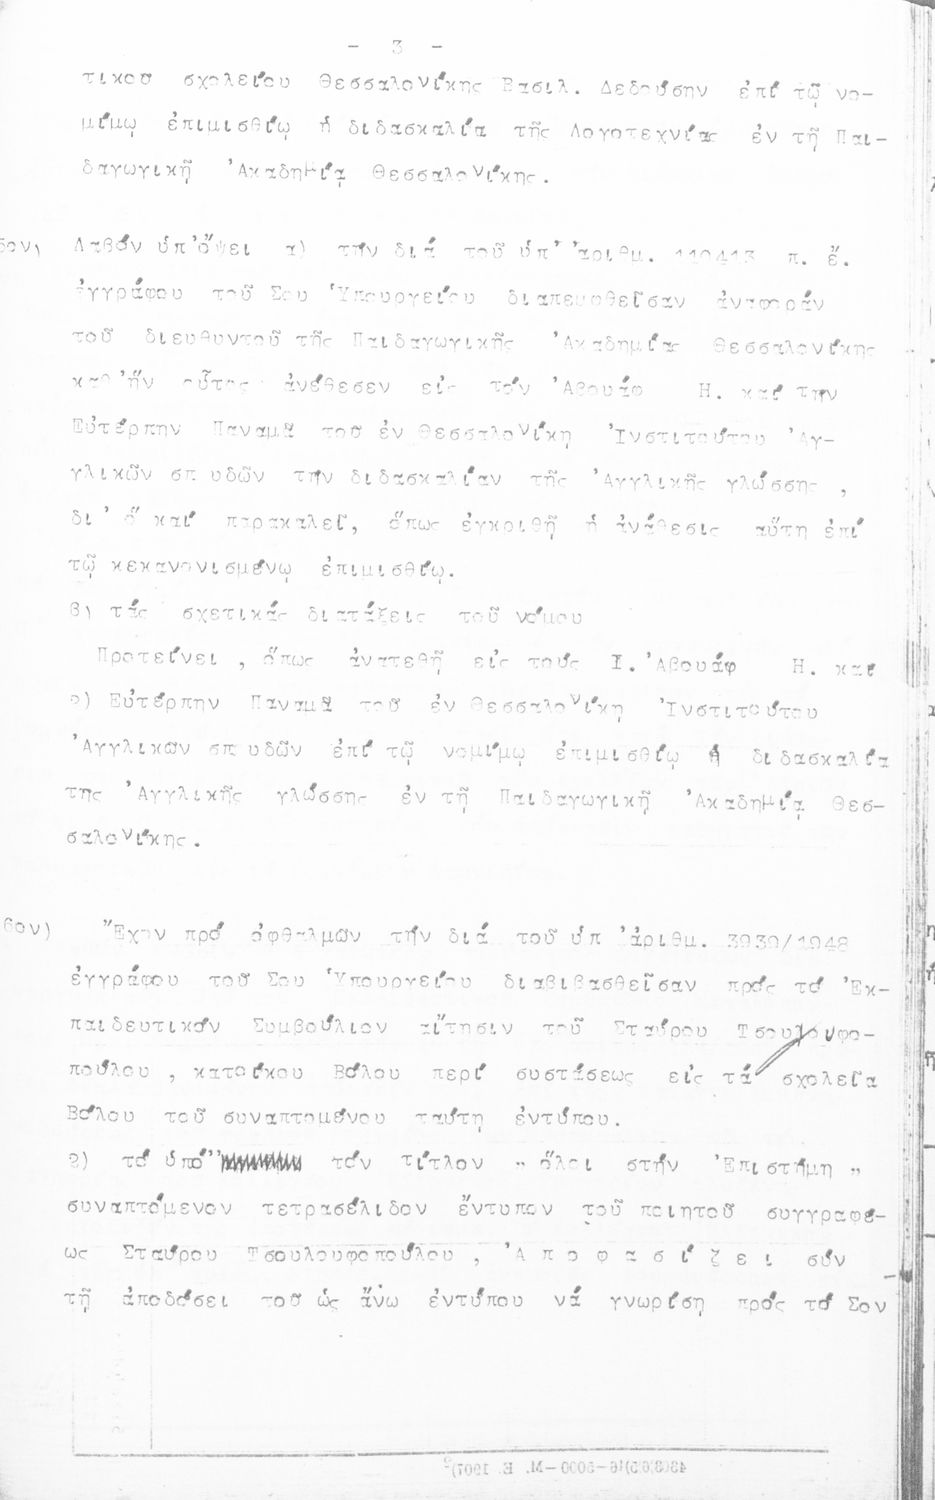 - 3 -
τικοῦ σχολείου Θεσσαλονίκης Βασιλ. Δεδούσην ἐπί τῷ νο-
μίμῳ ἐπιμισθίῳ ἡ διδασκαλία τῆς Λογοτεχνίας ἐν τῇ Παι-
δαγωγικῇ Ἀκαδημίᾳ Θεσσαλονίκης.
5ον) Λαβόν ὑπ'ὄψει α) τήν διά τοῦ ὑπ' ἀριθμ. 110413 π. ἔ.
ἐγγράφου τοῦ Σου Ὑπουργείου διαπεμφθεῖσαν ἀναφοράν
τοῦ διευθυντοῦ τῆς Παιδαγωγικῆς Ἀκαδημίας Θεσσαλονίκης
καθ'ἥν οὗτος ἀνέθεσεν είς τόν Ἀβουάφ Η. καί την
Εὐτέρπην Παναμᾶ τοῦ ἐν Θεσσαλονίκη Ἰνστιτούτου Ἀγ-
γλικῶν σπυδῶν τήν διδασκαλίαν τῆς Ἀγγλικῆς γλώσσης ,
δι' ὅ καί παρακαλεῖ, ὅπως ἐγκριθῇ ἡ ἀνάθεσις αὕτη ἐπί
τῷ κεκανονισμένῳ ἐπιμισθίῳ.
β) τάς σχετικάς διατάξεις τοῦ νόμου
Προτείνει , ὅπως ἀνατεθῇ είς τούς Ι. Ἀβουάφ Η. καί
2) Εὐτέρπην Παναμᾶ τοῦ ἐν Θεσσαλονίκη Ἰνστιτούτου
Ἀγγλικῶν σπυδῶν ἐπί τῷ νομίμῳ ἐπιμισθίῳ ἡ διδασκαλία
της Ἀγγλικῆς γλώσσης ἐν τῇ Παιδαγωγικῇ Ἀκαδημίᾳ Θεσ-
σαλονίκης.
6ον) Ἔχον πρό ὀφθαλμῶν τήν διά τοῦ ὑπ ἀριθμ. 3939/1948
ἐγγράφου τοῦ Σου Ὑπουργείου διαβιβασθεῖσαν πρός τό Ἐκ-
παιδευτικόν Συμβούλιον αἴτησιν τοῦ Σταύρου Τσουλουφο-
πούλου , κατοίκου Βόλου περί συστάσεως εἰς τά σχολεῖα
Βόλου τοῦ συναπτομένου ταύτη ἐντύπου.
2) τό ὑπό τόν τίτλον " ὅλοι στήν Ἐπιστήμη "
συναπτόμενον τετρασέλιδον ἔντυπον τοῦ ποιητοῦ συγγραφέ-
ως Σταύρου Τσουλουφοπούλου , Ἀ π ο φ α σ ί ζ ε ι σύν
τῇ ἀποδόσει τοῦ ὡς ἄνω ἐντύπου νά γνωρίση πρός τό Σον